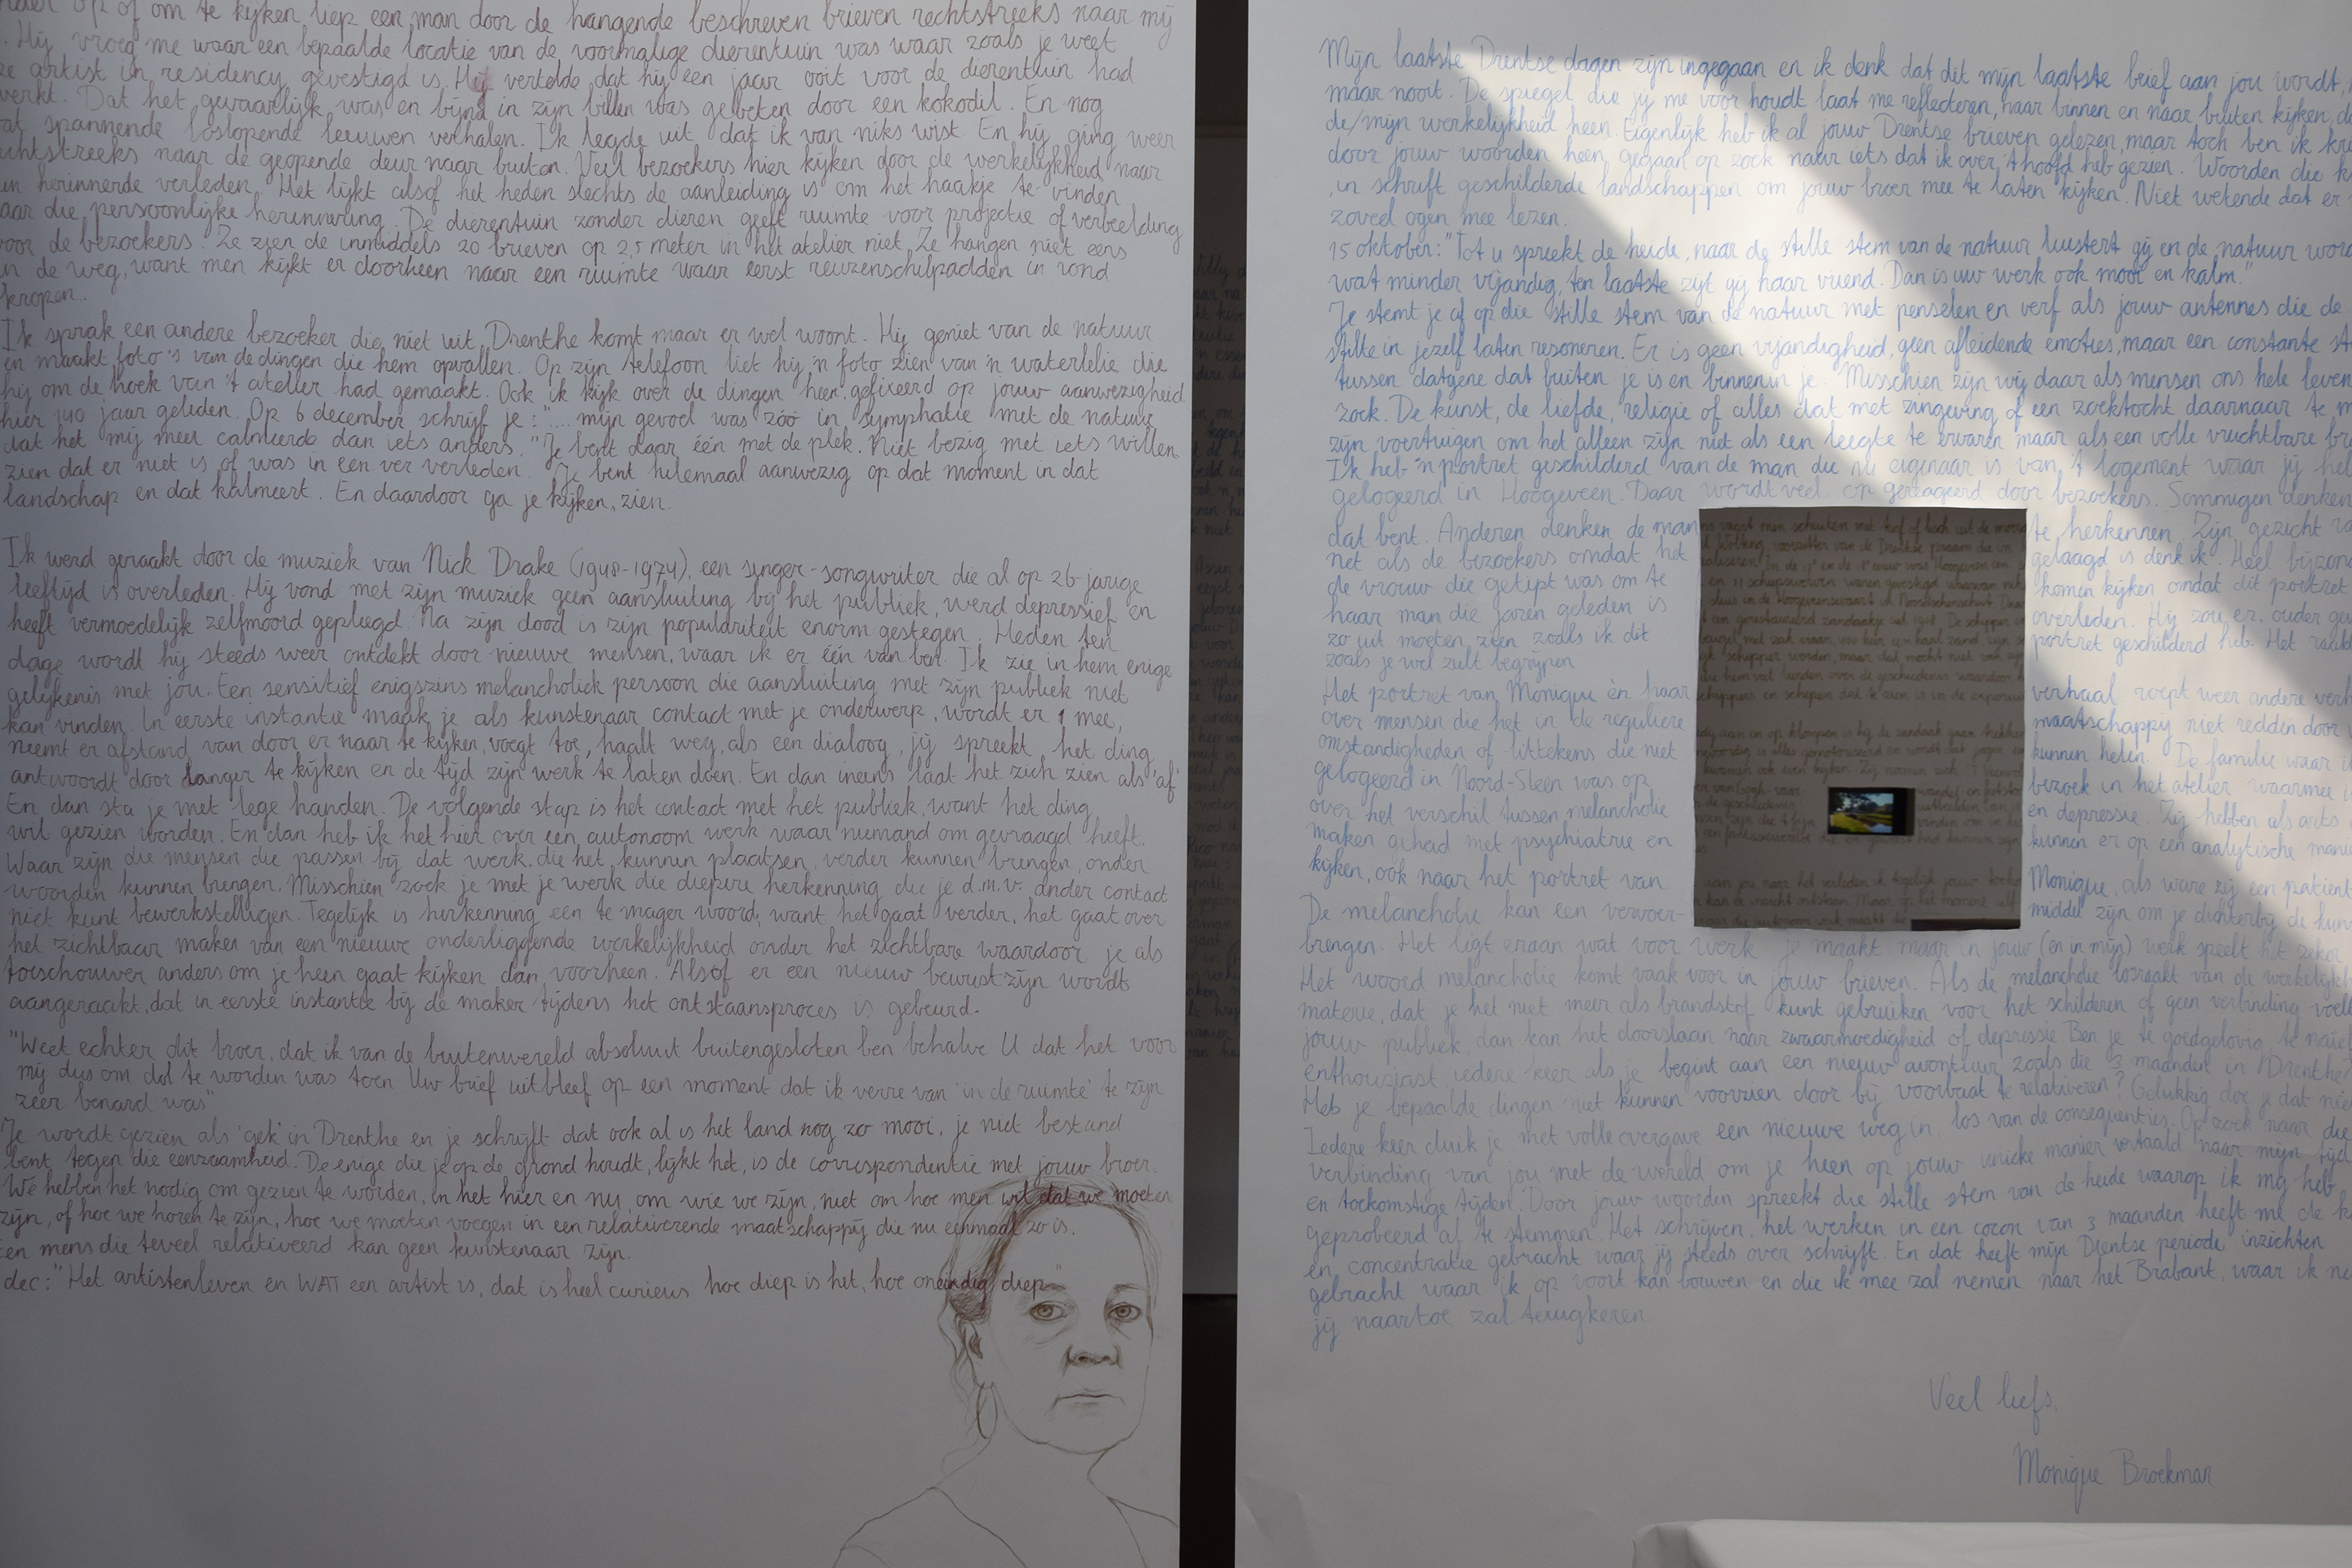 op of om te kijken liep een man door de hangende beschreven brieven rechtstreeks naar mij
. Hij vroeg me waar een bepaalde locatie van de voormalige dierentuin was waar zoals je weet
artist in residency gevestigd is. Hij vertelde dat hij een jaar ooit voor de dierentuin had
werkt. Dat het gevaarlijk was en bijna in zijn billen was gebeten door een kokodil. En nog
spannende loslopende leeuwen verhalen. Ik legde uit dat ik van niks wist. En hij ging weer
chtstreeks naar de geopende deur naar buiten. Veel bezoekers hier kijken door de werkelijkheid naar
herinnerde verleden. Het lijkt alsof het heden slechts de aanleiding is om het haakje te vinden
aar die persoonlijke herinnering. De dierentuin zonder dieren geeft ruimte voor projectie of verbeelding
voor de bezoekers. Ze zien de inmiddels 20 brieven op 2,5 meter in het atelier niet. Ze hangen niet eens
in de weg, want men kijkt er doorheen naar een ruimte waar eerst reuzenschilpadden in rond
kropen.
Ik sprak een andere bezoeker die niet uit Drenthe komt maar er wel woont. Hij geniet van de natuur
en maakt foto's van de dingen die hem opvallen. Op zijn telefoon liet hij 'n foto zien van 'n waterlelie die
hij om de hoek van 't atelier had gemaakt. Ook ik kijk over de dingen heen, gefixeerd op jouw aanwezigheid
hier 140 jaar geleden. Op 6 december schrijf je: ".... mijn gevoel was zóó in symphatie met de natuur
dat het mij meer calmeerde dan iets anders." Je bent daar één met de plek. Niet bezig met iets willen
zien dat er niet is of was in een ver verleden. Je bent helemaal aanwezig op dat moment in dat
landschap en dat kalmeert. En daardoor ga je kijken, zien.
Ik werd geraakt door de muziek van Nick Drake (1948-1974), een singer-songwriter die al op 26-jarige
leeftijd is overleden. Hij vond met zijn muziek geen aansluiting bij het publiek, werd depressief en
heeft vermoedelijk zelfmoord gepleegd. Na zijn dood is zijn populariteit enorm gestegen. Heden ten
dage wordt hij steeds weer ontdekt door nieuwe mensen, waar ik er één van ben. Ik zie in hem enige
gelijkenis met jou. Een sensitief enigszins melancholiek persoon die aansluiting met zijn publiek niet
kan vinden. In eerste instantie maak je als kunstenaar contact met je onderwerp, wordt er 1 mee,
neemt er afstand van door er naar te kijken, voegt toe, haalt weg, als een dialoog, jij spreekt, het ding
antwoordt door langer te kijken en de tijd zijn werk te laten doen. En dan ineens laat het zich zien als 'af'
En dan sta je met lege handen. De volgende stap is het contact met het publiek, want het ding
wil gezien worden. En dan heb ik het hier over een autonoom werk waar niemand om gevraagd heeft.
Waar zijn die mensen die passen bij dat werk, die het kunnen plaatsen, verder kunnen brengen, onder
woorden kunnen brengen. Misschien zoek je met je werk die diepere herkenning die je d.m.v. ander contact
niet kunt bewerkstelligen. Tegelijk is herkenning een te mager woord, want het gaat verder, het gaat over
het zichtbaar maken van een nieuwe onderliggende werkelijkheid onder het zichtbare waardoor je als
toeschouwer anders om je heen gaat kijken dan voorheen. Alsof er een nieuw bewustzijn wordt
aangeraakt, dat in eerste instantie bij de maker tijdens het ontstaansproces is gebeurd.
"Weet echter dit broer, dat ik van de buitenwereld absoluut buitengesloten ben behalve U dat het voor
mij dus om dol te worden was toen Uw brief uitbleef op een moment dat ik verre van 'in de ruimte' te zijn
zeer benard was"
Je wordt gezien als 'gek' in Drenthe en je schrijft dat ook al is het land nog zo mooi, je niet bestand
bent tegen die eenzaamheid. De enige die je op de grond houdt, lijkt het, is de correspondentie met jouw broer.
We hebben het nodig om gezien te worden, in het hier en nu, om wie we zijn, niet om hoe men wil dat we moeten
zijn, of hoe we horen te zijn, hoe we moeten voegen in een relativerende maatschappij die nu eenmaal zo is.
Een mens die teveel relativeerd kan geen kunstenaar zijn.
dec: "Het artistenleven en WAT een artist is, dat is heel curieus hoe diep is het, hoe oneindig diep."
Mijn laatste Drentse dagen zijn ingegaan en ik denk dat dit mijn laatste brief aan jou wordt,
maar nooit. De spiegel die jij me voor houdt laat me reflecteren, naar binnen en naar buiten kijken,
de/mijn werkelijkheid heen. Eigenlijk heb ik al jouw Drentse brieven gelezen, maar toch ben ik
door jouw woorden heen gegaan op zoek naar iets dat ik over 't hoofd heb gezien. Woorden die
, in schrift geschilderde landschappen om jouw broer mee te laten kijken. Niet wetende dat er
zoveel ogen mee lezen.
15 oktober: "Tot u spreekt de heide, naar de stille stem van de natuur luistert gij en de natuur
wat minder vijandig, ten laatste zijt gij haar vriend. Dan is uw werk ook mooi en kalm."
Je stemt je af op die stille stem van de natuur met penselen en verf als jouw antennes die de
stilte in jezelf laten resoneren. Er is geen vijandigheid, geen afleidende emoties, maar een constante
tussen datgene dat buiten je is en binnenin je. Misschien zijn wij daar als mensen ons hele leven
zoek. De kunst, de liefde, religie of alles dat met zingeving of een zoektocht daarnaar te
zijn voertuigen om het alleen zijn niet als een leegte te ervaren maar als een volle vruchtbare
Ik heb 'n portret geschilderd van de man die nu eigenaar is van 't logement waar jij
gelogeerd in Hoogeveen. Daar wordt veel op gereageerd door bezoekers. Sommigen denken
dat bent. Anderen denken de man te herkennen. Zijn gezicht
net als de bezoekers omdat het gelaagd is denk ik. Heel
de vrouw die getipt was om te komen kijken omdat dit portret
haar man die jaren geleden is overleden. Hij zou er, ouder
zo uit moeten zien zoals ik dit portret geschilderd heb. Het
zoals je wel zult begrijpen
Het portret van Monique en haar verhaal roept weer andere
over mensen die het in de reguliere maatschappij niet redden door
omstandigheden of littekens die niet kunnen helen. De familie waar
gelogeerd in Noord-Sleen was op bezoek in het atelier waarmee
over het verschil tussen melancholie en depressie. Zij hebben als arts
maken gehad met psychiatrie en kunnen er op een analytische
kijken, ook naar het portret van Monique, als ware zij een patient
De melancholie kan een vervoer- middel zijn om je dichterbij de
brengen. Het ligt eraan wat voor werk je maakt maar in jouw (en in mijn) werk speelt het zeker
Het woord melancholie komt vaak voor in jouw brieven. Als de melancholie losraakt van de
materie, dat je het niet meer als brandstof kunt gebruiken voor het schilderen of geen verbinding
jouw publiek, dan kan het doorslaan naar zwaarmoedigheid of depressie. Ben je te goedgelovig, te
enthousiast iedere keer als je begint aan een nieuw avontuur zoals die 3 maanden in Drenthe?
Heb je bepaalde dingen niet kunnen voorzien door bij voorbaat te relativeren? Gelukkig doe je dat
Iedere keer duik je met volle overgave een nieuwe weg in, los van de consequenties. Op zoek naar die
verbinding van jou met de wereld om je heen op jouw unieke manier vertaald naar mijn tijd
en toekomstige tijden. Door jouw woorden spreekt die stille stem van de heide waarop ik mij heb
geprobeerd af te stemmen. Het schrijven, het werken in een cocon van 3 maanden heeft me de
en concentratie gebracht waar jij steeds over schrijft. En dat heeft mijn Drentse periode inzichten
gebracht waar ik op voort kan bouwen en die ik mee zal nemen naar het Brabant, waar ik
jij naartoe zal terugkeren.
Veel liefs,
Monique Broekman